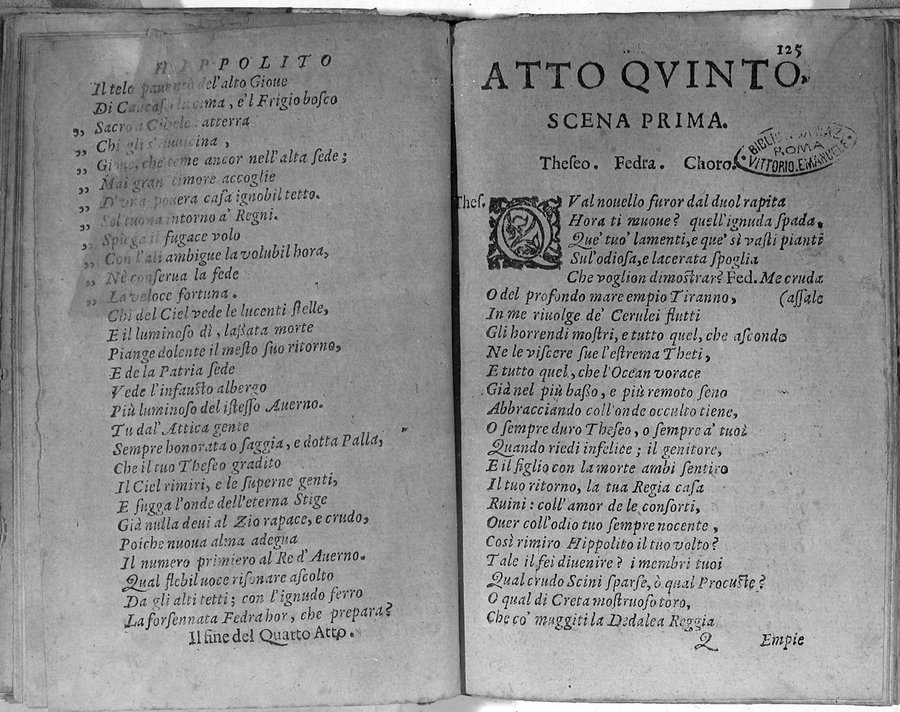 HIPPOLITO
Il telo pauentò del'alto Gioue
Di Caucaso la cima, e'l Frigio bosco
„ Sacro a Cibele: atterra
„ Chi gli s'auuicina,
„ Gioue, che teme ancor nell'alta sede;
„ Mai gran timore accoglie
„ D'vna pouera casa ignobil tetto.
„ Sol tuona intorno a' Regni.
„ Spiega il fugace volo
„ Con l'ali ambigue la volubil hora,
„ Nè conserua la fede
„ La veloce fortuna.
Chi del Ciel vede le lucenti stelle,
E il luminoso dì, lassata morte
Piange dolente il mesto suo ritorno,
E de la Patria sede
Vede l'infausto albergo
Più luminoso del istesso Auerno.
Tu dal'Attica gente
Sempre honorata o saggia, e dotta Palla,
Che il tuo Theseo gradito
Il Ciel rimiri, e le superne genti,
E fugga l'onde dell'eterna Stige
Già nulla deui al Zio rapace, e crudo,
Poiche nuoua alma adegua
Il numero primiero al Re d'Auerno.
Qual flebil uoce risonare ascolto
Da gli alti tetti; con l'ignudo ferro
La forsennata Fedra hor, che prepara?
Il fine del Quarto Atto.
125
ATTO QVINTO,
SCENA PRIMA.
Theseo. Fedra. Choro.
BIBLIOTECA NAZ.
ROMA
VITTORIO.EMANUELE
Thes. QVal nouello furor dal duol rapita
Hora ti muoue? quell'ignuda spada,
Que' tuo' lamenti, e que' sì vasti pianti
Sul'odiosa, e lacerata spoglia
Che voglion dimostrar? Fed. Me cruda
O del profondo mare empio Tiranno, (assale
In me riuolge de' Cerulei flutti
Gli horrendi mostri, e tutto quel, che asconde
Ne le viscere sue l'estrema Theti,
E tutto quel, che l'Ocean vorace
Già nel più basso, e più remoto seno
Abbracciando coll'onde occulto tiene,
O sempre duro Theseo, o sempre a' tuoi
Quando riedi infelice; il genitore,
E il figlio con la morte ambi sentiro
Il tuo ritorno, la tua Regia casa
Ruini: coll'amor de le consorti,
Ouer coll'odio tuo sempre nocente,
Così rimiro Hippolito il tuo volto?
Tale il fei diuenire? i membri tuoi
Qual crudo Scini sparse, ò qual Procuste?
O qual di Creta mostruoso toro,
Che co' muggiti la Dedalea Reggia
Q Empie